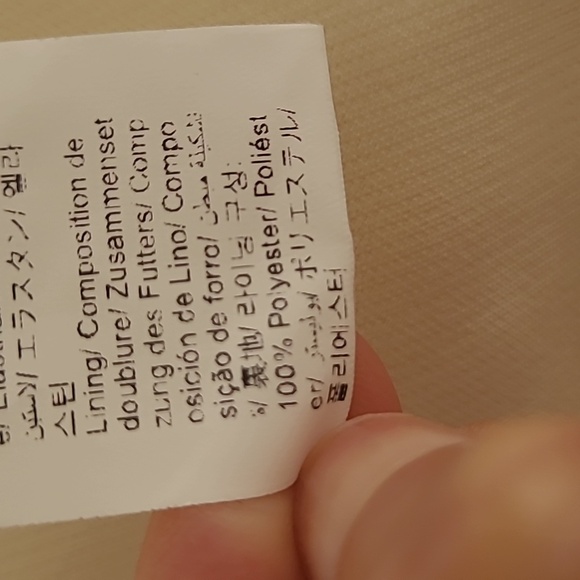 エラスタン/ 엘라
스틴
Lining/ Composition de
doublure/ Zusammenset
zung des Futters/ Comp
osición de Lino/ Compo
sição de forro/
裏地/ 라이닝 구성:
100% Polyester/ Poliést
er/ ポリエステル/
폴리에스터